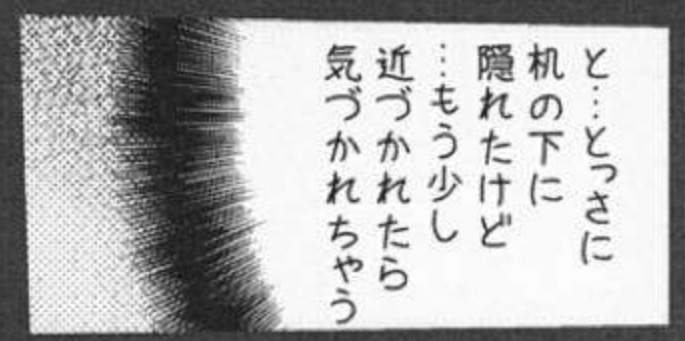 と…とっさに
机の下に
隠れたけど
…もう少し
近づかれたら
気づかれちゃう